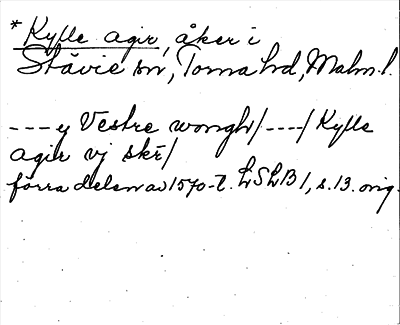 * Kylle agir, åker i
Stävie sn, Torna hd, Malm.l.
---- y Vestre wongh/----/Kylle
agir vj skr/
förra delen av 1570-t. LSLB I, s.13. orig.